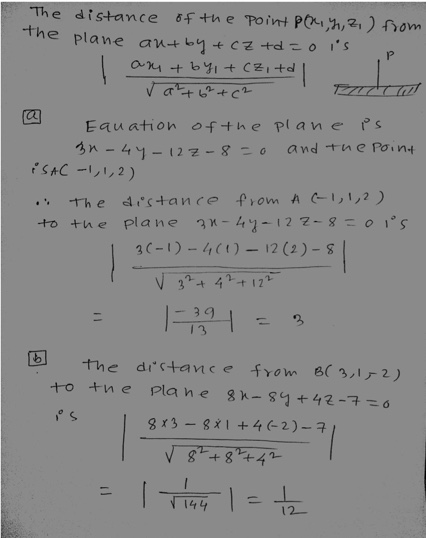 The distance of the point P(x₁,y₁,z₁) from
the plane ax+by+cz+d=0 is
| ax₁ + by₁ + cz₁+d / √a²+b²+c² |
P
a
Equation of the plane is
3x-4y-12z-8=0 and the point
is A(-1,1,2)
∴ The distance from A(-1,1,2)
to the plane 3x-4y-12z-8=0 is
| 3(-1)-4(1)-12(2)-8 / √3²+4²+12² |
= | -39 / 13 | = 3
b
The distance from B(3,1,-2)
to the plane 8x-8y+4z-7=0
is
| 8×3-8×1+4(-2)-7 / √8²+8²+4² |
= | 1 / √144 | = 1/12